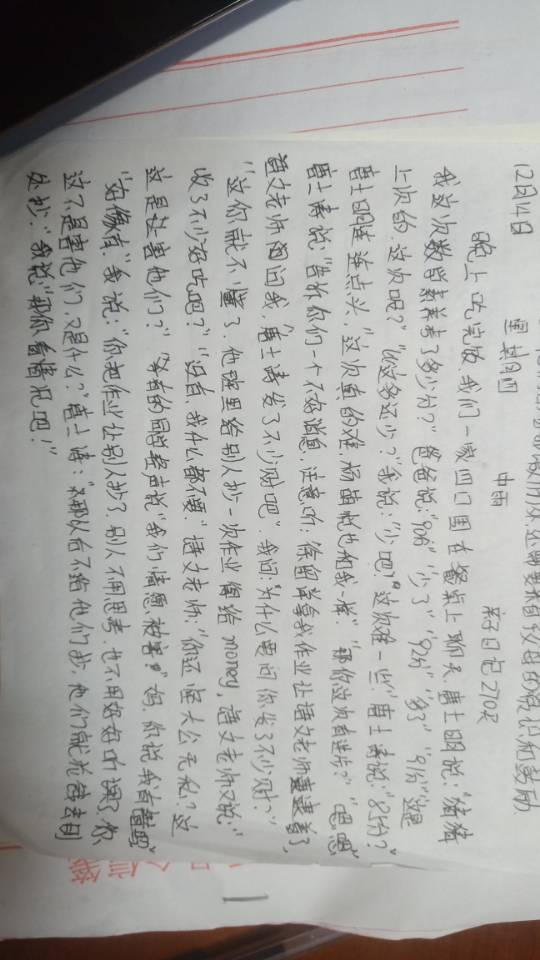 12月14日 星期四 中雨
晚上吃完饭，我们一家四口围在餐桌上聊天，唐士明说：“猜猜
我这次数学考了多少分？”爸爸说：“90分”“少了”“92分”“多了”“91分”“这是
上次的，这次呢？”“比这多还少？”我说：“少吧！”“这次难一些”唐士涛说：“85分？”
唐士明连连点头，“这次真的难，杨苗悦也和我一样”“那你这次有进步？”“嗯嗯”
唐士涛说：“告诉你们一个不好消息，注意听：徐留首拿我作业让语文老师逮着了，
语文老师问我，“唐士涛发了不少财吧”，我问：“为什么要问你发了不少财？”
“这你就不懂了，他班里给别人抄一次作业得给money，语文老师又说：“
收了不少好吃吧？”“没有，我什么都不要。”语文老师：“你还挺大公无私？这
这是让害他们？”“好多的同学起声说“我们情愿被害”妈，你说我有错吗”
“好像有。”我说：“你把作业让别人抄了，别人不用思考，也不用好好听课了，你
这不是害他们，又是什么？”唐士涛：“那以后不给他们抄，他们就抢着去别
处抄。”我说“那你看情况吧！”